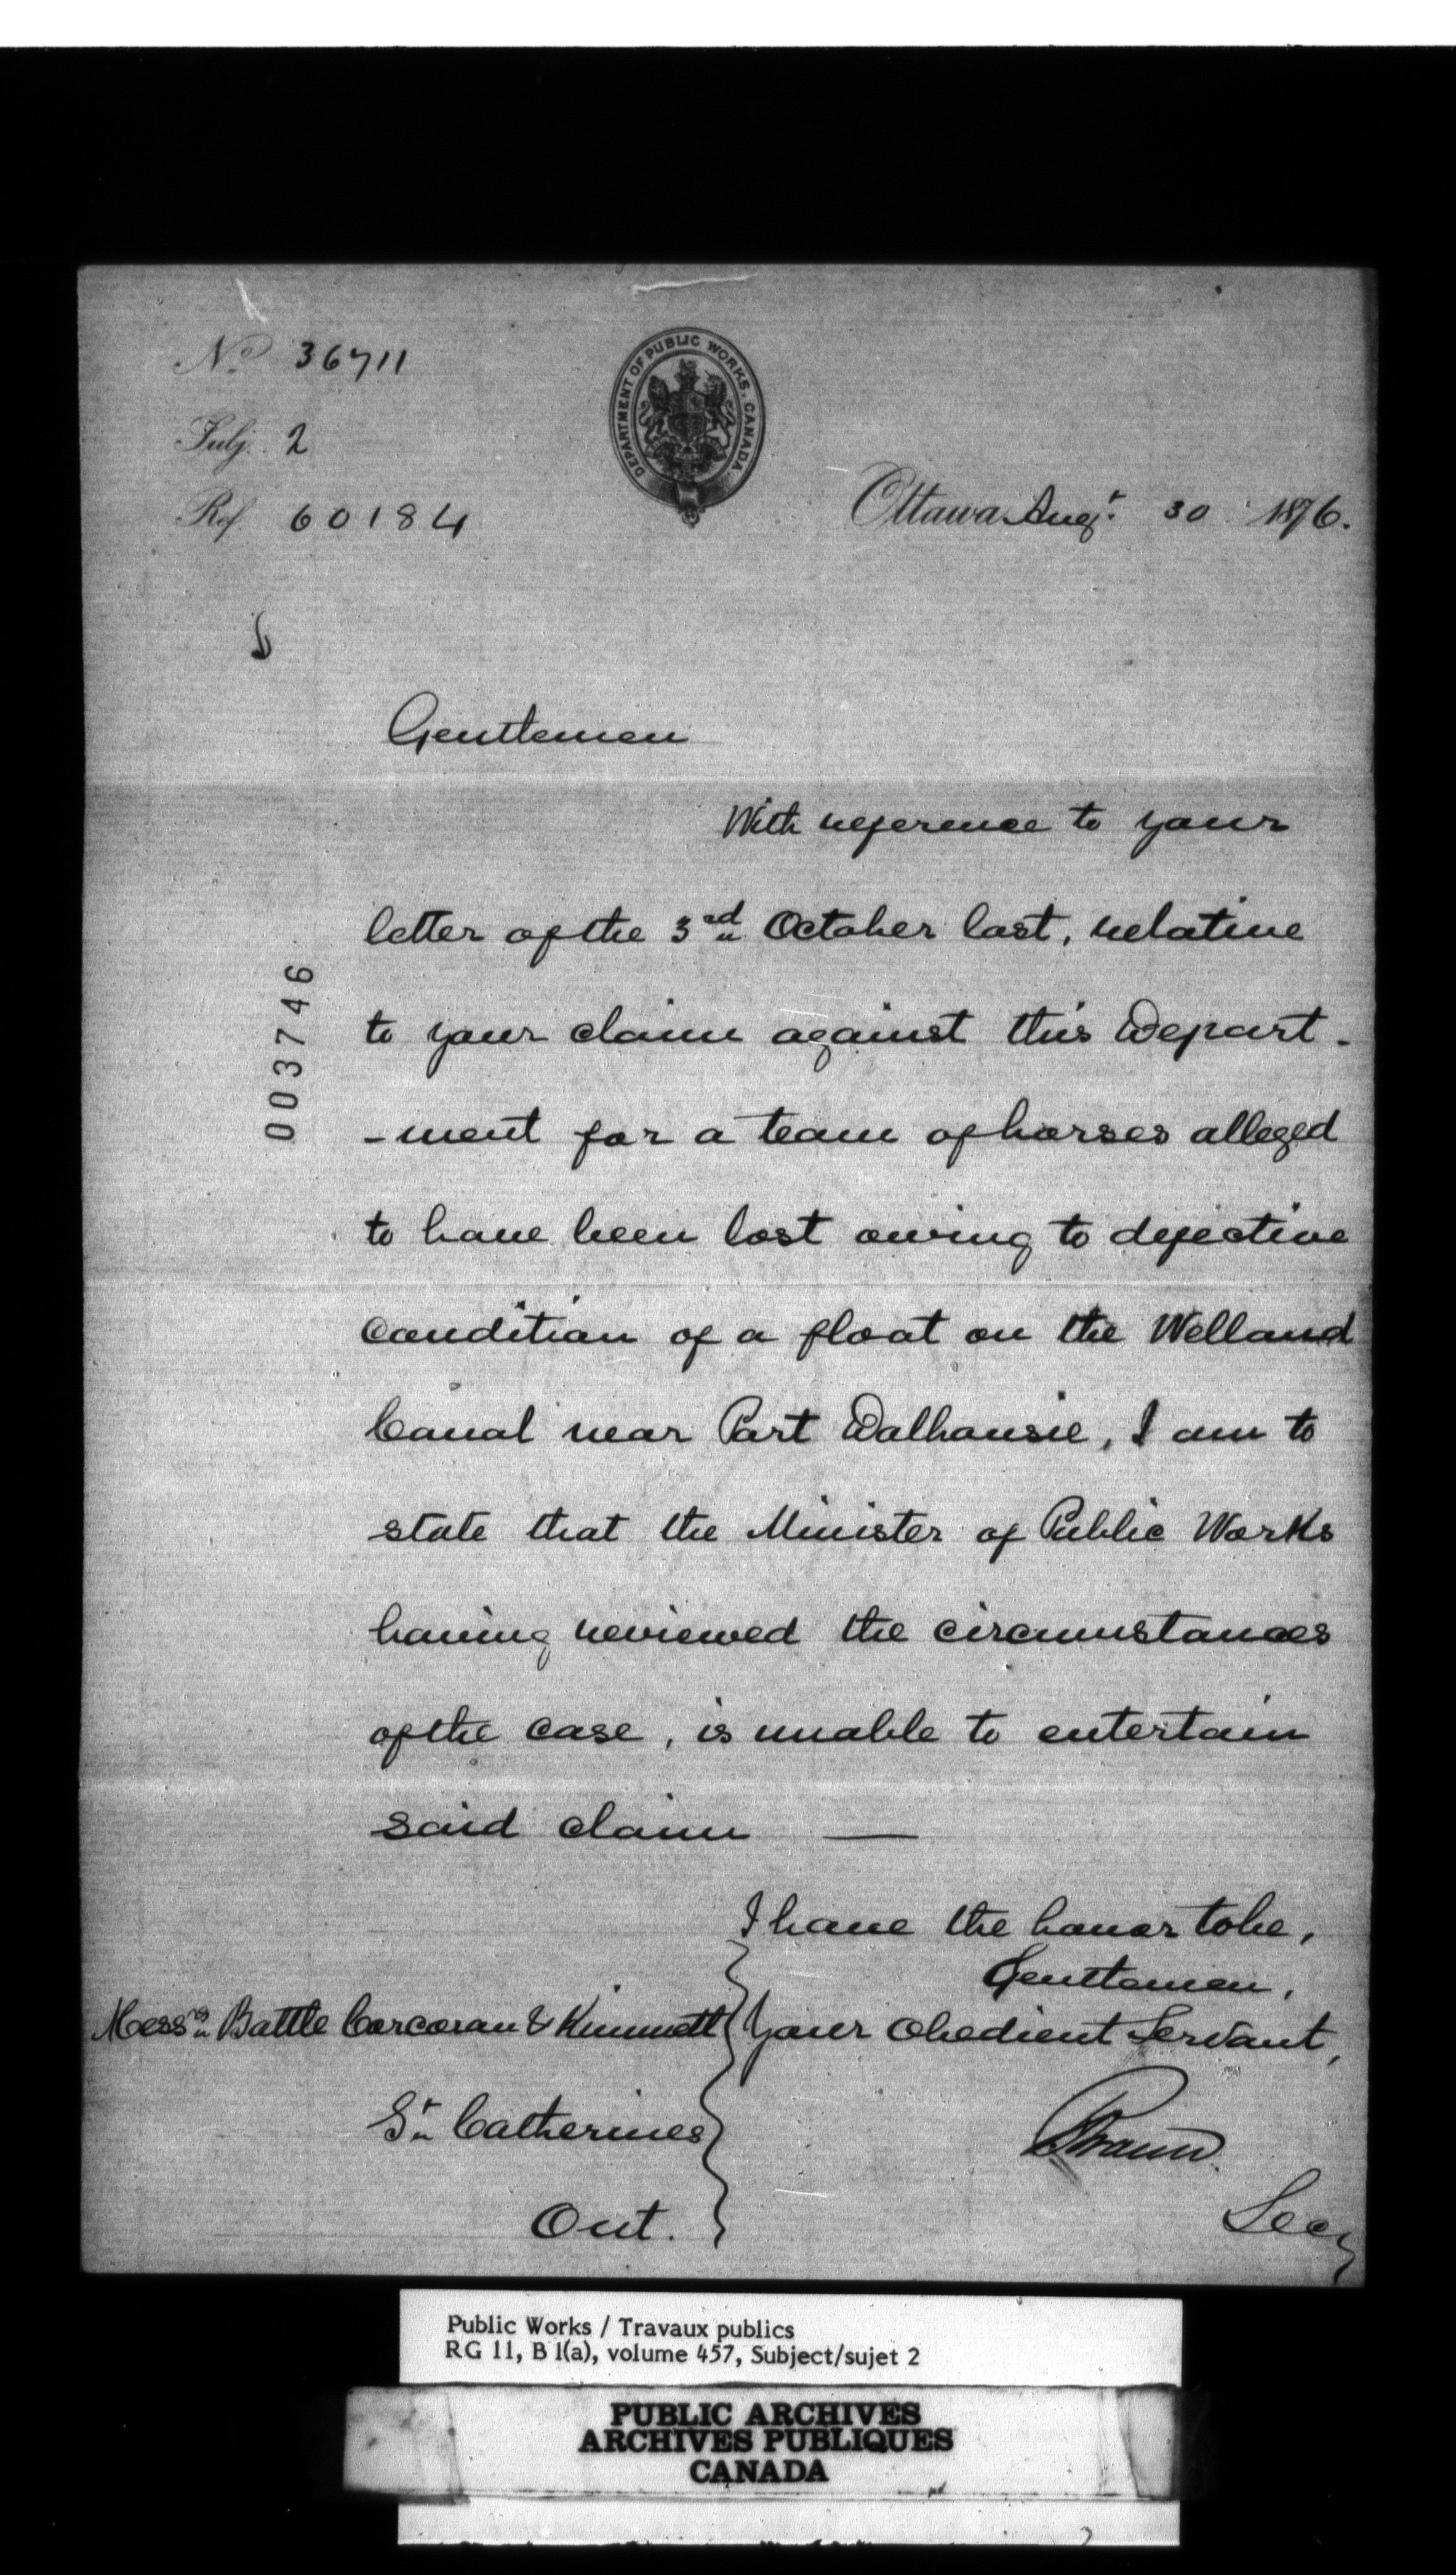 No 36711
DEPARTMENT OF PUBLIC WORKS, CANADA.
Subj. 2
Ref. 60184
Ottawa Augt. 30 1876.
Gentlemen
With reference to your
letter of the 3rd October last, relative
to your claim against this Depart-
-ment for a team of horses alleged
to have been lost owing to defective
condition of a float on the Welland
Canal near Port Dalhousie, I am to
state that the Minister of Public Works
having reviewed the circumstances
of the case, is unable to entertain
said claim —
003746
I have the honor to be,
Gentlemen,
Your Obedient Servant,
Messrs Battle Corcoran &
St Catherines
Ont.
Braun
Secy
Public Works / Travaux publics
RG 11, B 1(a), volume 457, Subject/sujet 2
PUBLIC ARCHIVES
ARCHIVES PUBLIQUES
CANADA